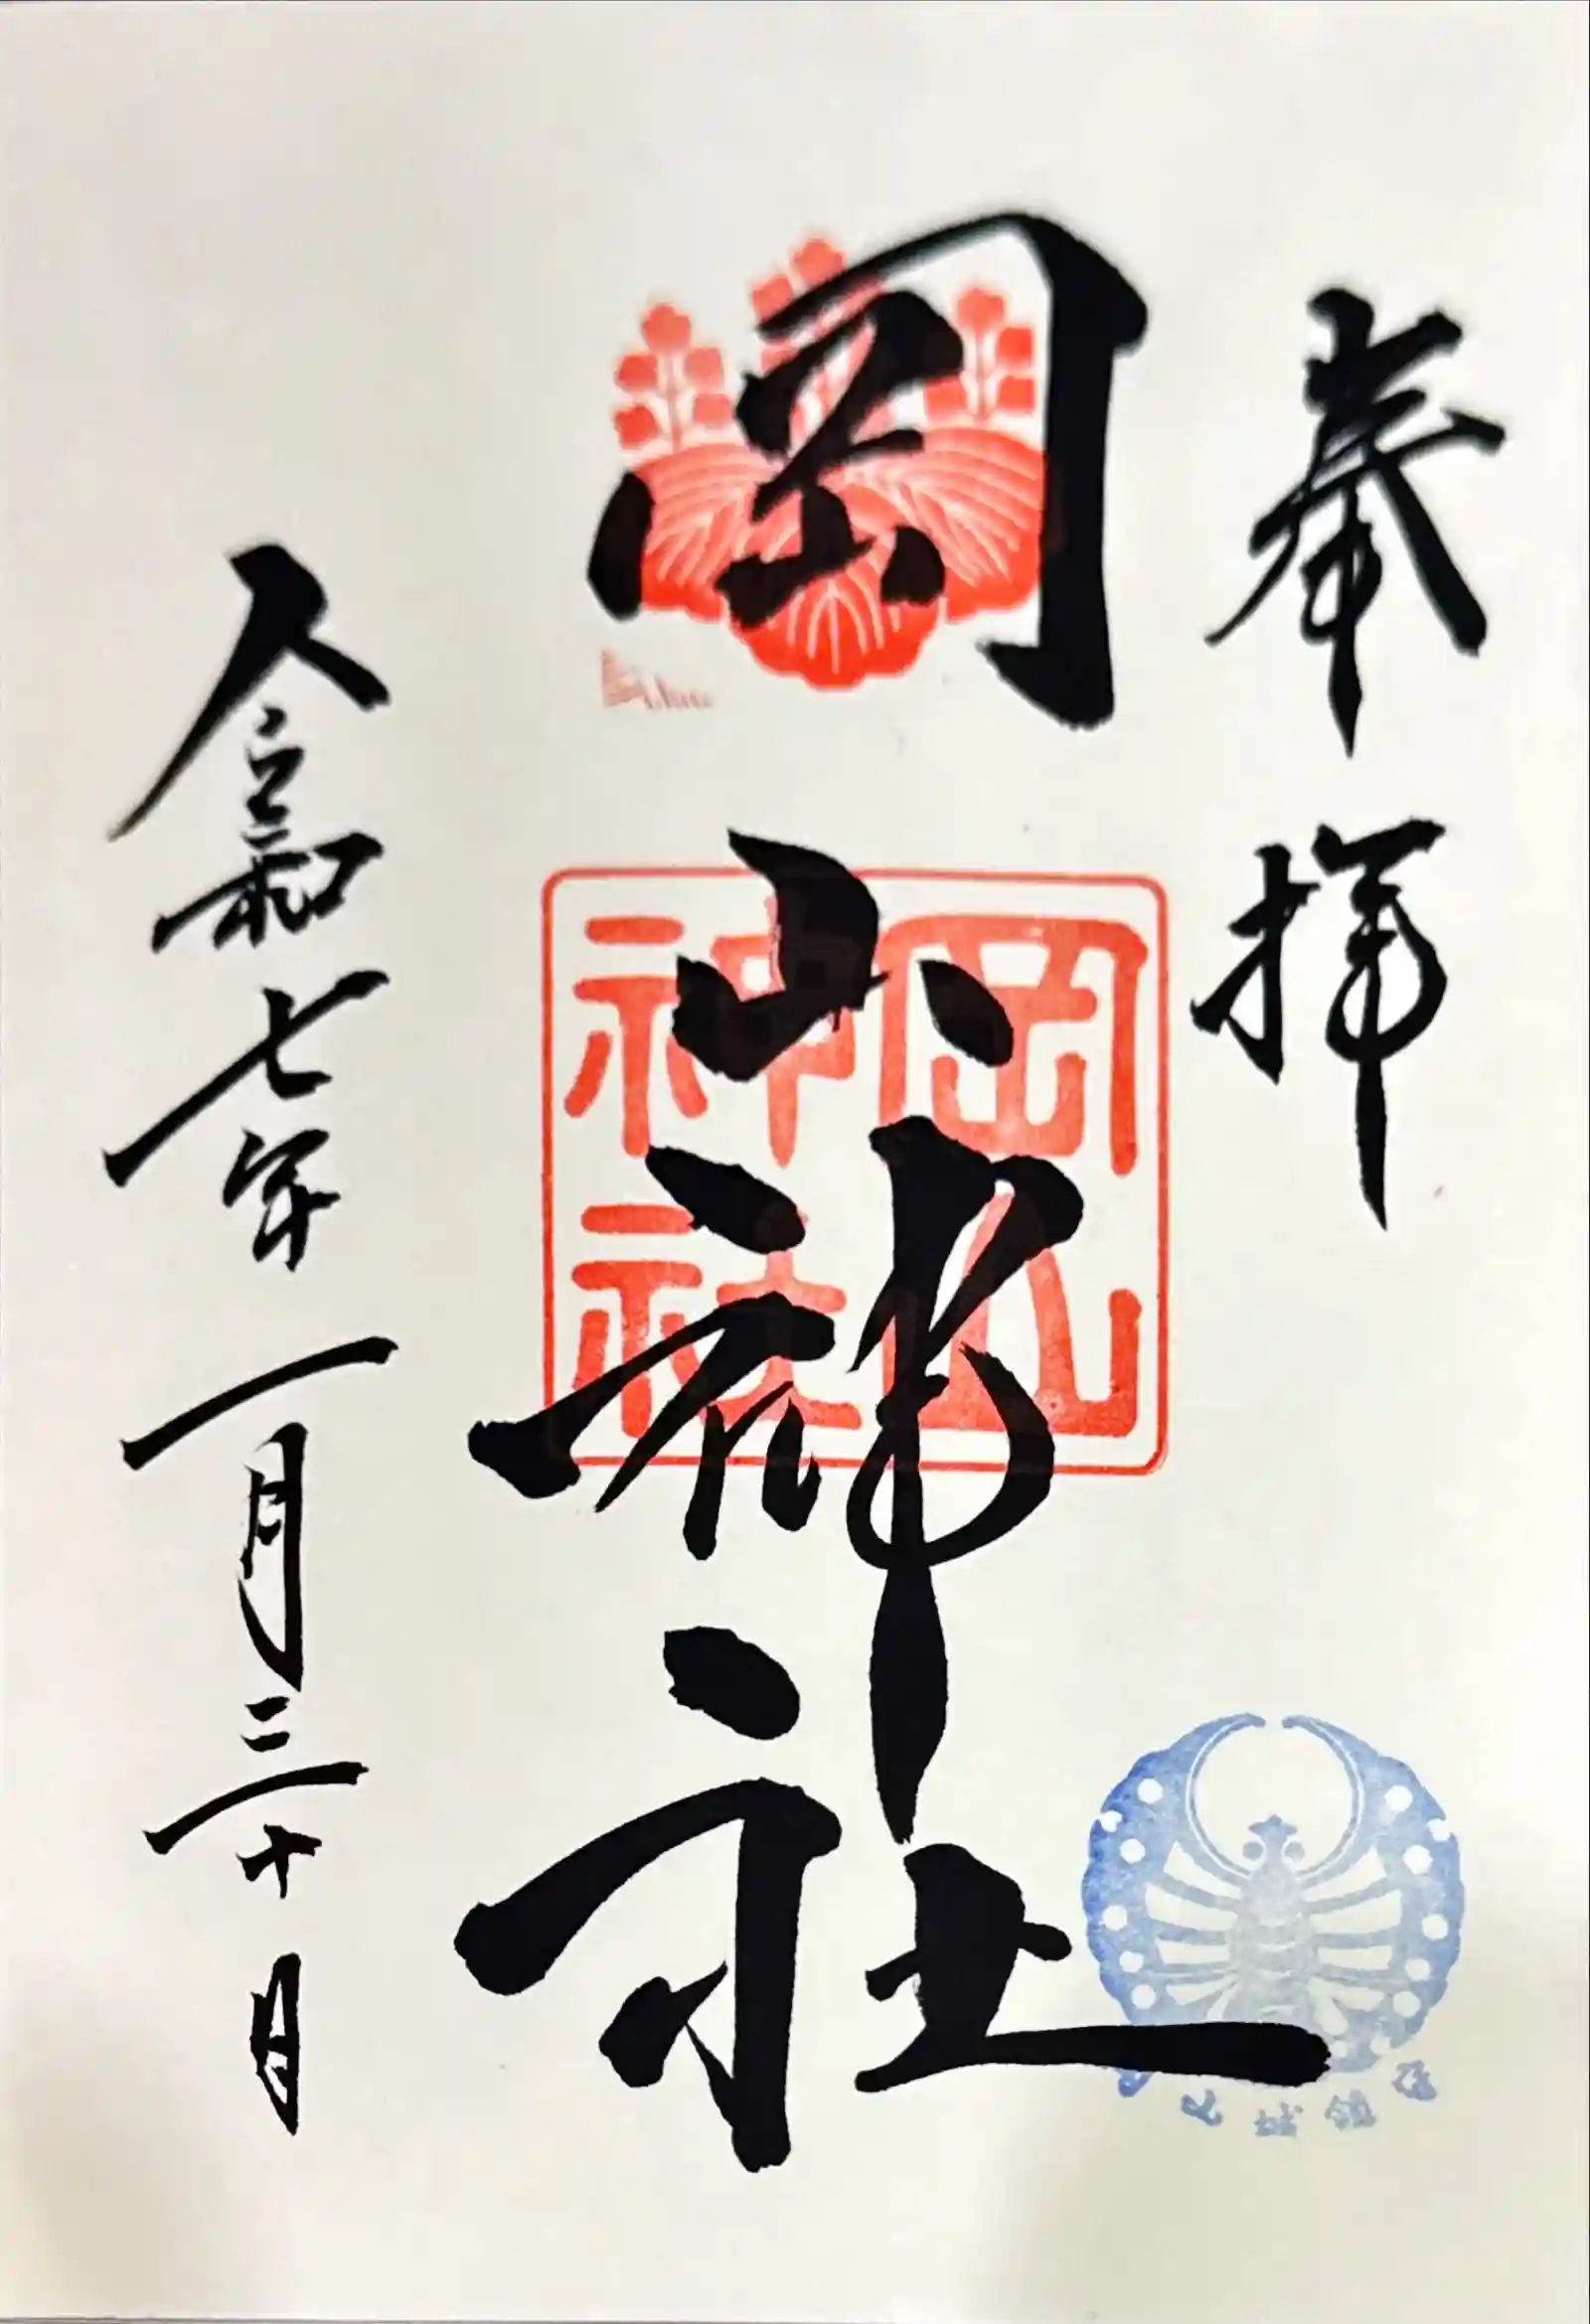 奉拝
岡山神社
岡山
神社
令和七年一月三十日